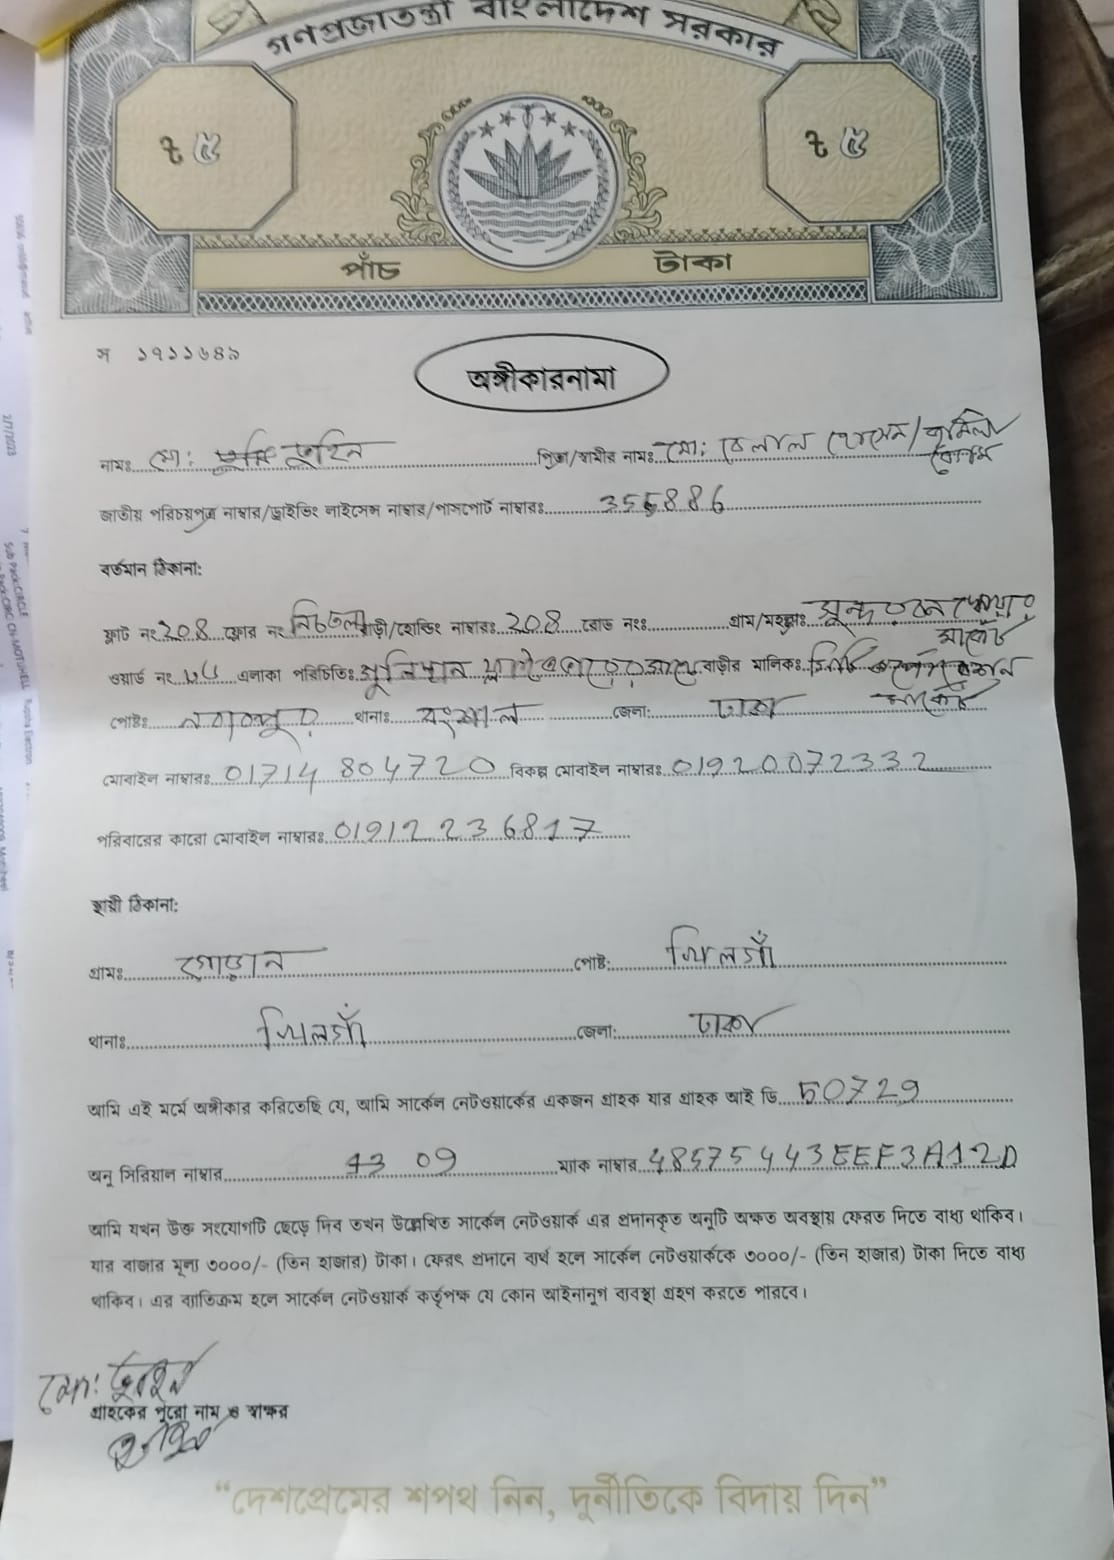 গণপ্রজাতন্ত্রী বাংলাদেশ সরকার
৳ ৫ ৳ ৫
পাঁচ টাকা
স ১৭১১৬৪৯
অঙ্গীকারনামা
নামঃ মো: তুহিন পিতা/স্বামীর নামঃ মো: বেলাল হোসেন/
জাতীয় পরিচয়পত্র নাম্বার/ড্রাইভিং লাইসেন্স নাম্বার/পাসপোর্ট নাম্বারঃ 355886
বর্তমান ঠিকানা:
ফ্লাট নং 208 ফ্লোর নং নিচতলা বাড়ী/হোল্ডিং নাম্বারঃ 208 রোড নংঃ গ্রাম/মহল্লাঃ সুন্দরবন স্কোয়ার মার্কেট
ওয়ার্ড নং এলাকা পরিচিতিঃ বাড়ীর মালিকঃ
পোষ্টঃ নবাবপুর থানাঃ বংশাল জেলা: ঢাকা মার্কেট
মোবাইল নাম্বারঃ 01714 804720 বিকল্প মোবাইল নাম্বারঃ 01920072332
পরিবারের কারো মোবাইল নাম্বারঃ 01912236817
স্থায়ী ঠিকানা:
গ্রামঃ গোড়ান পোষ্ট: খিলগাঁ
থানাঃ খিলগাঁ জেলা: ঢাকা
আমি এই মর্মে অঙ্গীকার করিতেছি যে, আমি সার্কেল নেটওয়ার্কের একজন গ্রাহক যার গ্রাহক আই ডি 50729
অনু সিরিয়াল নাম্বার 13 09 ম্যাক নাম্বার 48575443EEF3A12D
আমি যখন উক্ত সংযোগটি ছেড়ে দিব তখন উল্লেখিত সার্কেল নেটওয়ার্ক এর প্রদানকৃত অনুটি অক্ষত অবস্থায় ফেরত দিতে বাধ্য থাকিব।
যার বাজার মূল্য ৩০০০/- (তিন হাজার) টাকা। ফেরৎ প্রদানে ব্যর্থ হলে সার্কেল নেটওয়ার্ককে ৩০০০/- (তিন হাজার) টাকা দিতে বাধ্য
থাকিব। এর ব্যতিক্রম হলে সার্কেল নেটওয়ার্ক কর্তৃপক্ষ যে কোন আইনানুগ ব্যবস্থা গ্রহণ করতে পারবে।
মো: তুহিন
গ্রাহকের পুরো নাম ও স্বাক্ষর
“দেশপ্রেমের শপথ নিন, দুর্নীতিকে বিদায় দিন”